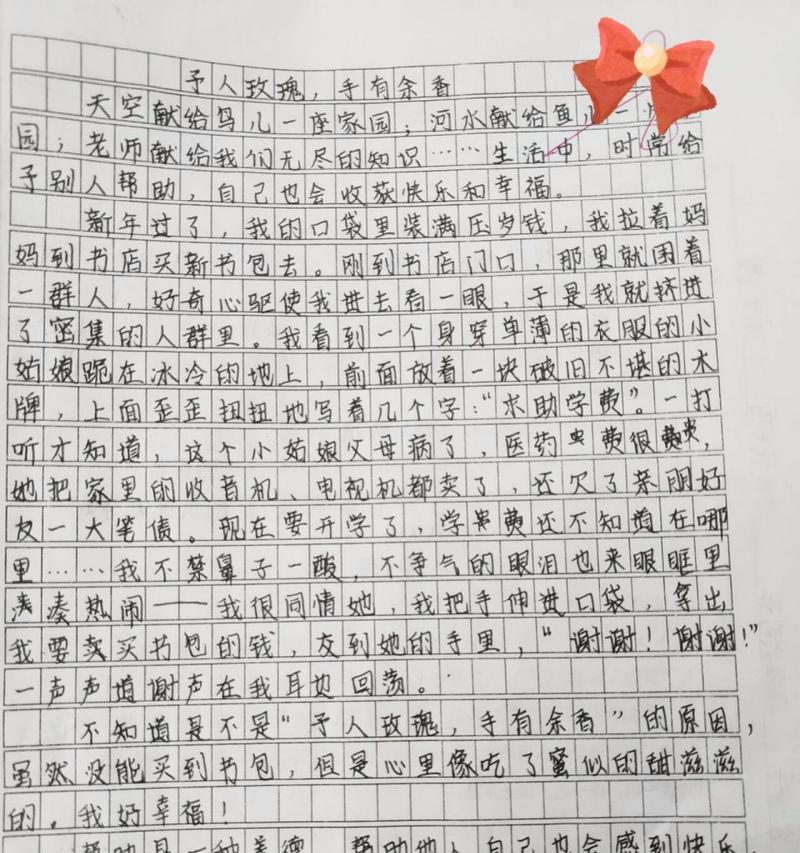 予人玫瑰，手有余香
天空献给鸟儿一座家园；河水献给鱼儿一
园；老师献给我们无尽的知识……生活中，时常给
予别人帮助，自己也会收获快乐和幸福。
新年过了，我的口袋里装满压岁钱，我拉着妈
妈到书店买新书包去。刚到书店门口，那里就围着
一群人，好奇心驱使我进去看一眼，于是我就挤进
了密集的人群里。我看到一个身穿单薄的衣服的小
姑娘跪在冰冷的地上，前面放着一块破旧不堪的木
牌，上面歪歪扭扭地写着几个字：“求助学费”。一打
听才知道，这个小姑娘父母病了，医药费很贵，
她把家里的收音机、电视机都卖了，还欠了亲朋好
友一大笔债。现在要开学了，学费还不知道在哪
里……我不禁鼻子一酸，不争气的眼泪也来眼眶里
凑凑热闹——我很同情她，我把手伸进口袋，拿出
我要卖买书包的钱，交到她的手里，“谢谢！谢谢！”
一声声道谢声在我耳边回荡。
不知道是不是“予人玫瑰，手有余香”的原因，
虽然没能买到书包，但是心里像吃了蜜似的甜滋滋
的。我好幸福！
帮助是一种美德，帮助他人，自己也会感到快乐，